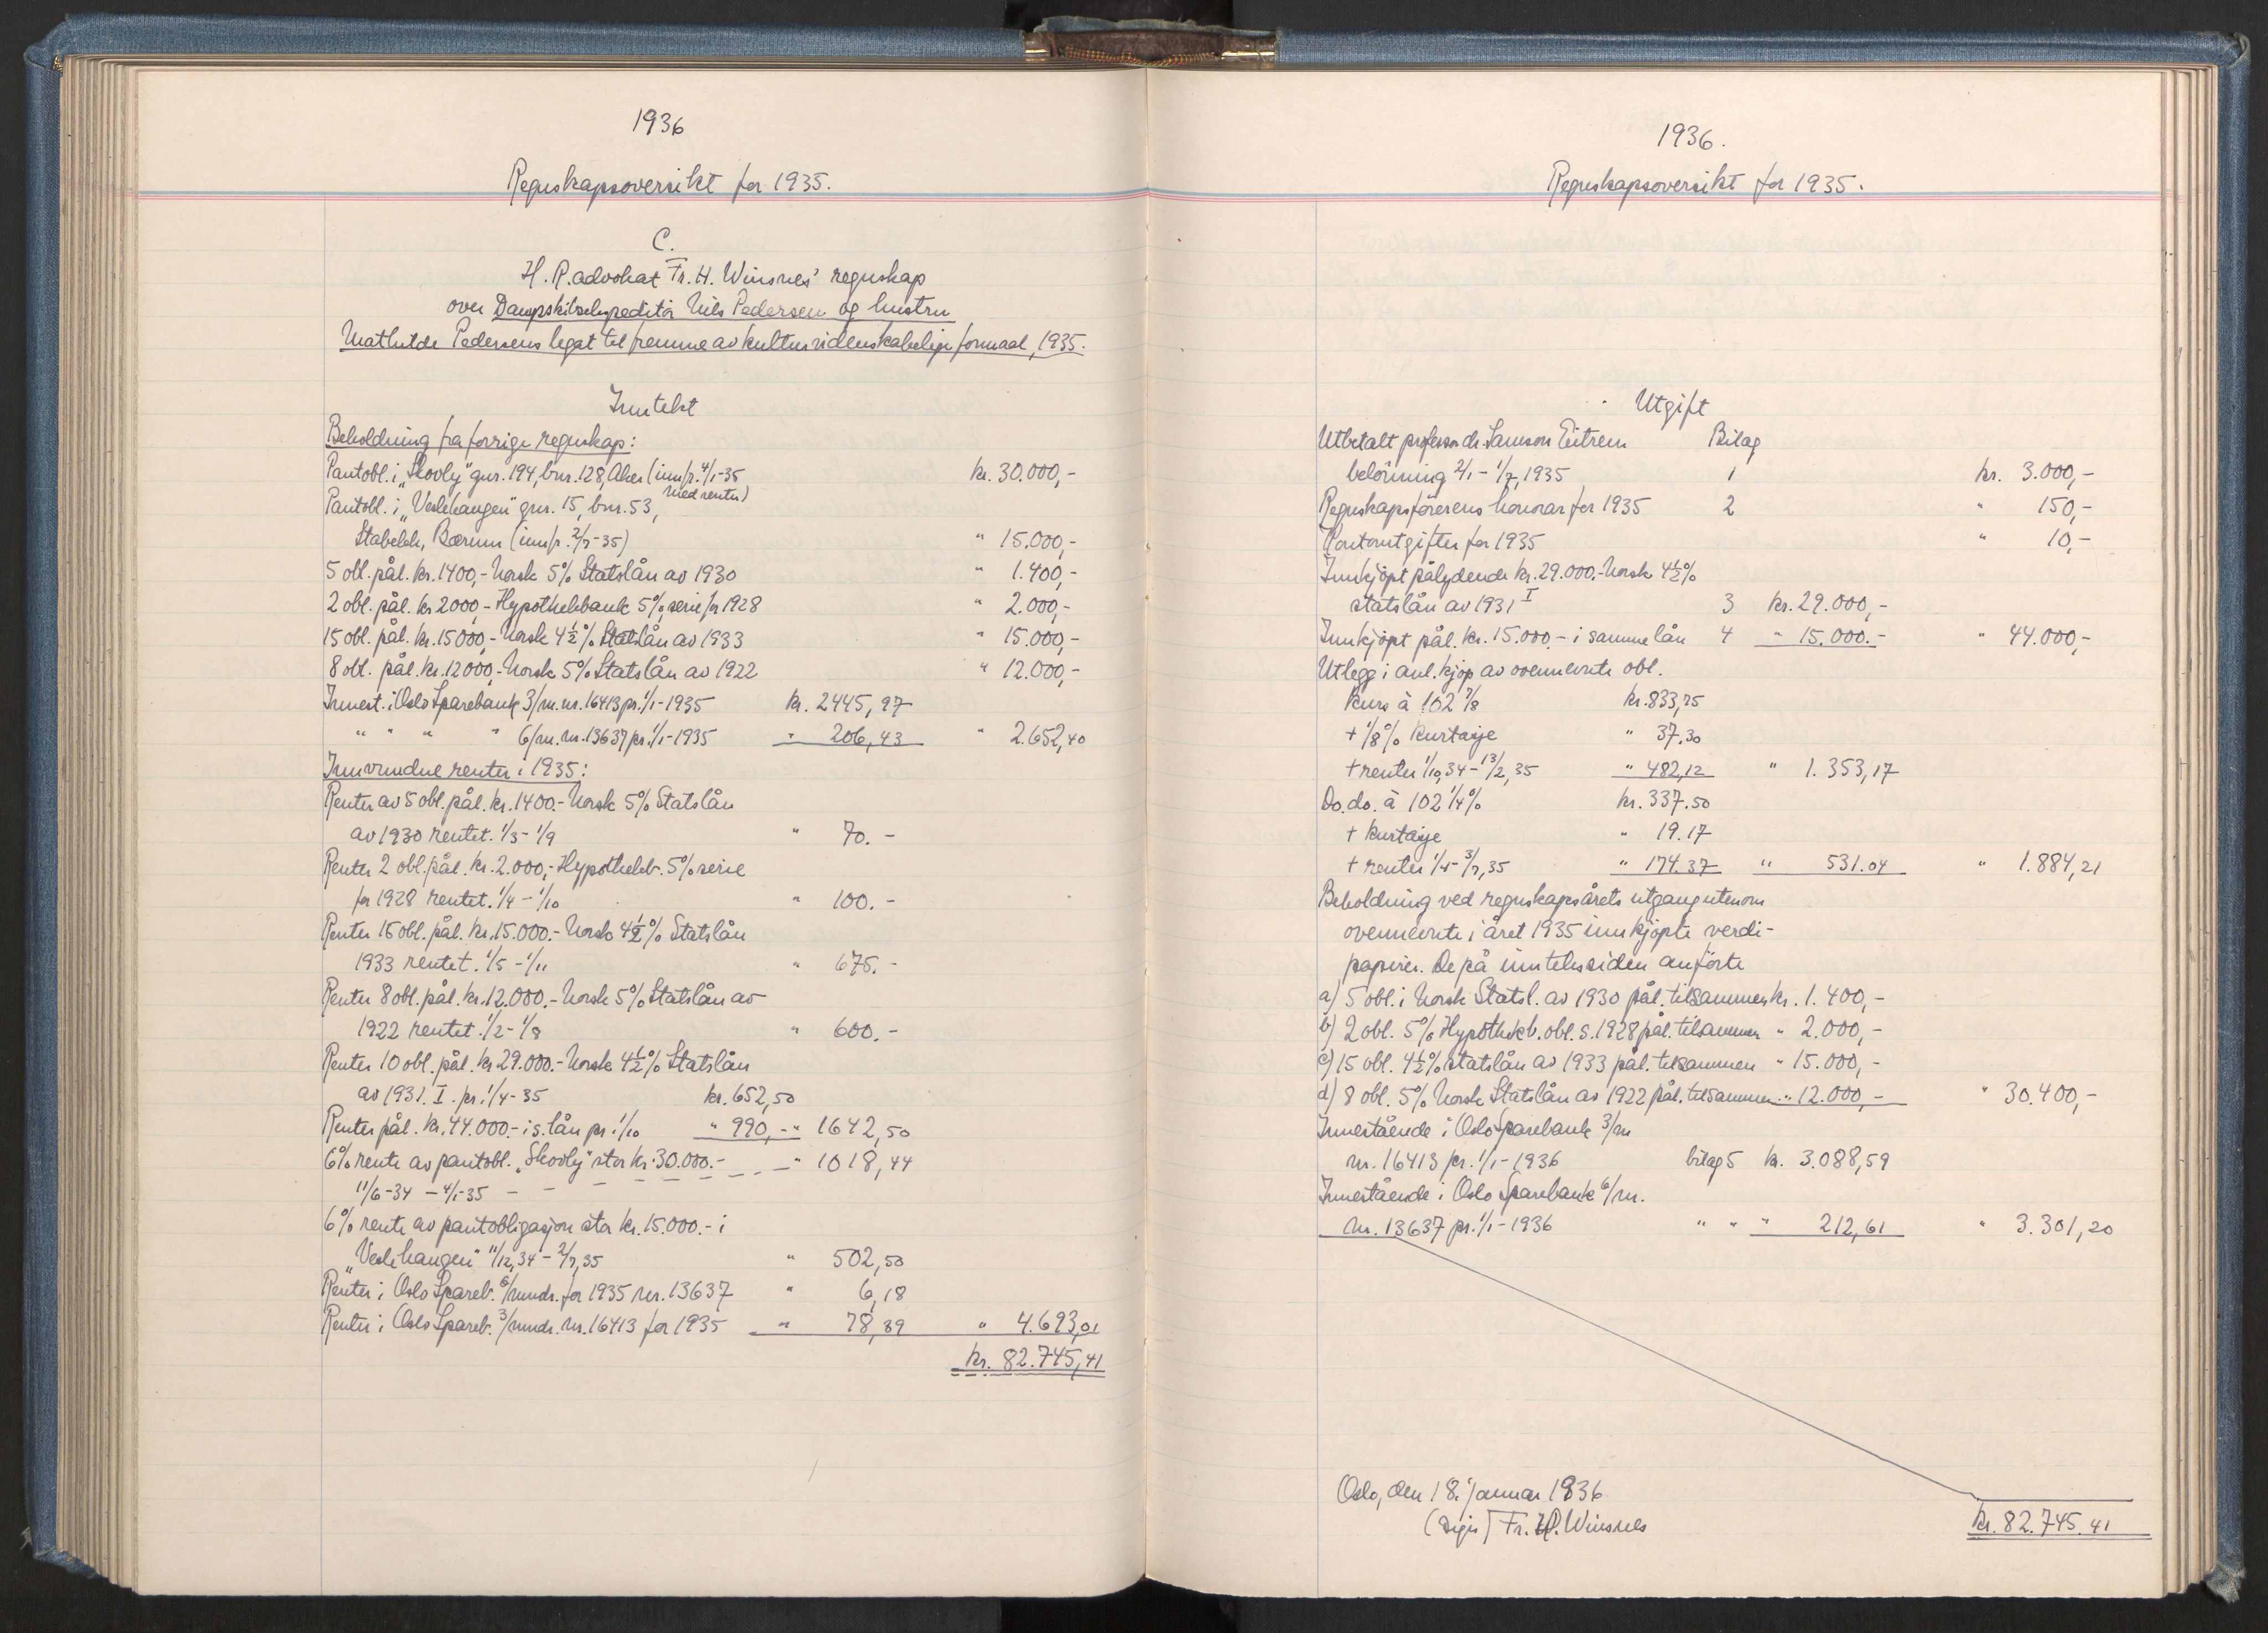 1936
Regnskapsoversikt for 1935.
C.
H. R. advokat Fr. H. Winsnes' regnskap
over Dampskibsekspeditör Nils Pedersen og hustru
Mathilde Pedersens legat til fremme av kulturvidenskabelige formaal, 1935.
Inntekt
Beholdning fra forrige regnskap:
Pantobl. i „Skovly" gnr. 194, bnr. 128, Aker (innfr. 4/1-35 kr. 30.000,-
med renter)
Pantobl. i „Veslehaugen" gnr. 15, bnr. 53,
Stabekk, Bærum (innfr. 2/7-35) " 15.000,-
5 obl. pål. kr. 1400,- Norsk 5% Statslån av 1930 " 1.400,-
2 obl. pål. kr 2000,- Hypothekbank 5% serie for 1928 " 2.000,-
15 obl. pål. kr. 15000,- Norsk 4½% Statslån av 1933 " 15.000,-
8 obl. pål. kr. 12000,- Norsk 5% Statslån av 1922 " 12.000,-
Innest. i Oslo Sparebank 3/m. nr. 16413 pr. 1/1-1935 kr. 2445,97
" " " " 6/m. nr. 13637 pr. 1/1-1935 " 206,43 " 2.652,40
Innvundne renter i 1935:
Renter av 5 obl. pål. kr. 1400.- Norsk 5% Statslån
av 1930 rentet. 1/3-1/9 " 70.-
Renter 2 obl. pål. kr. 2.000,- Hypothekb. 5% serie
for 1928 rentet. 1/4-1/10 " 100.-
Renter 15 obl. pål. kr. 15.000.- Norsk 4½% Statslån
1933 rentet. 1/5-1/11 " 675.-
Renter 8 obl. pål. kr. 12.000.- Norsk 5% Statslån av
1922 rentet. 1/2-1/8 " 600.-
Renter 10 obl. pål. kr 29.000.- Norsk 4½% Statslån
av 1931. I. pr. 1/4-35 kr. 652,50
Renter pål. kr. 44.000.- i s. lån pr. 1/10 " 990,- " 1642,50
6% rente av pantobl. „Skovly" stor kr. 30.000.- " 1018,44
11/6-34 - 4/1-35
6% rente av pantobligasjon stor kr. 15.000.- i
„Veslehaugen" 11/12,34 - 2/7,35 " 502,50
Renter i Oslo Spareb. 6/mndr. for 1935 nr. 13637 " 6,18
Renter i Oslo Spareb. 3/mndr. nr. 16413 for 1935 " 78,39 " 4.693,01
kr. 82.745,41
1936.
Regnskapsoversikt for 1935.
Utgift
Utbetalt professor dr. Samson Eitrem Bilag
belönning 2/1-1/7, 1935 1 kr. 3.000,-
Regnskapsförerens honorar for 1935 2 " 150,-
Kontorutgifter for 1935 " 10,-
Innkjöpt pålydende kr. 29.000.- Norsk 4½%
statslån av 1931 I 3 kr. 29.000,-
Innkjöpt pål. kr. 15.000.- i samme lån 4 " 15.000.- " 44.000,-
Utlegg i anl. kjöp av ovennevnte obl.
kurs à 102 7/8 kr. 833,75
+ 1/8% kurtasje " 37.30
+ renter 1/10,34-13/2,35 " 482,12 " 1.353,17
Do. do. à 102 1/4% kr. 337.50
+ kurtasje " 19.17
+ renter 1/4-3/7,35 " 174.37 " 531.04 " 1.884,21
Beholdning ved regnskapsårets utgang utenom
ovennevnte i året 1935 innkjöpte verdi-
papirer. De på inntektssiden anförte
a) 5 obl. i Norsk Statsl. av 1930 pål. tilsammen kr. 1.400,-
b) 2 obl. 5% Hypothekb. obl. s. 1928 pål. tilsammen " 2.000,-
c) 15 obl. 4½% statslån av 1933 pål. tilsammen " 15.000,-
d) 8 obl. 5% Norsk Statslån av 1922 pål. tilsammen " 12.000,- " 30.400,-
Innestående i Oslo Sparebank 3/m
nr. 16413 pr. 1/1-1936 bilag 5 kr. 3.088,59
Innestående i Oslo Sparebank 6/m.
nr. 13637 pr. 1/1-1936 " " " 212,61 " 3.301,20
Oslo, den 18. januar 1936.
(sign) Fr. H. Winsnes kr. 82.745.41